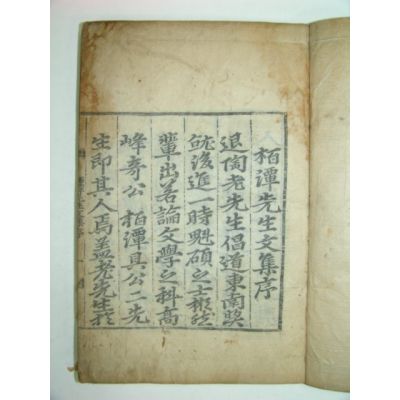 栢潭先生文集序
退陶老先生倡道東南奬
䱷後進一時魁碩之士彬然
輩出若論文學之科高
峰奇公栢潭具公二先
生即其人焉盖老先生於